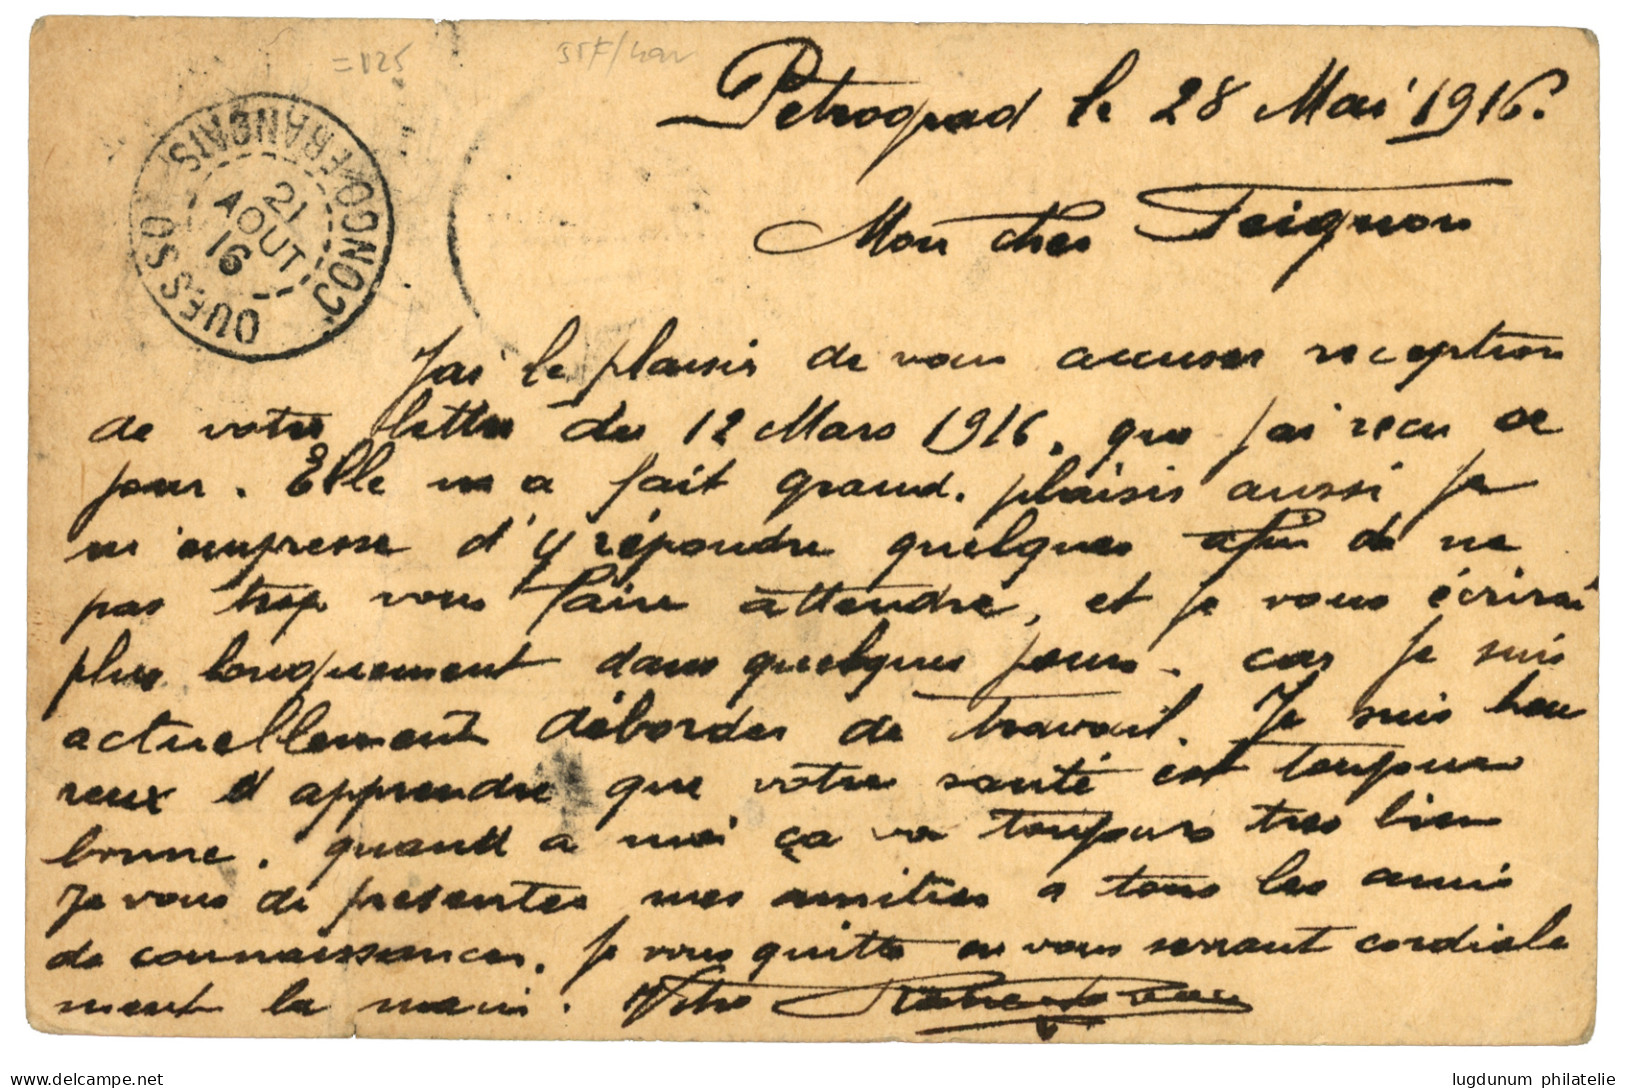 =125
Petrograd le 28 Mai 1916.
Mon cher Peignon
CONGO FRANÇAIS
21
AOUT
16
OUESSO
J'ai le plaisir de vous accuser reception
de votre lettre du 12 Mars 1916, que j'ai recu ce
jour. Elle m a fait grand plaisir aussi je
m'empresse d'y répondre quelques afin de ne
pas trop vous faire attendre, et je vous écrirai
plus longuement dans quelques jours. car je suis
actuellement débordes de travail. Je suis heu
reux d apprendre que votre santé est toujours
bonne. quand a moi ça va toujours tres bien
Je vous di presenter mes amities a tous les amis
de connaissances. Je vous quitte en vous serrant cordiale
ment la main. Votre
lugdunum philatelie
www.delcampe.net